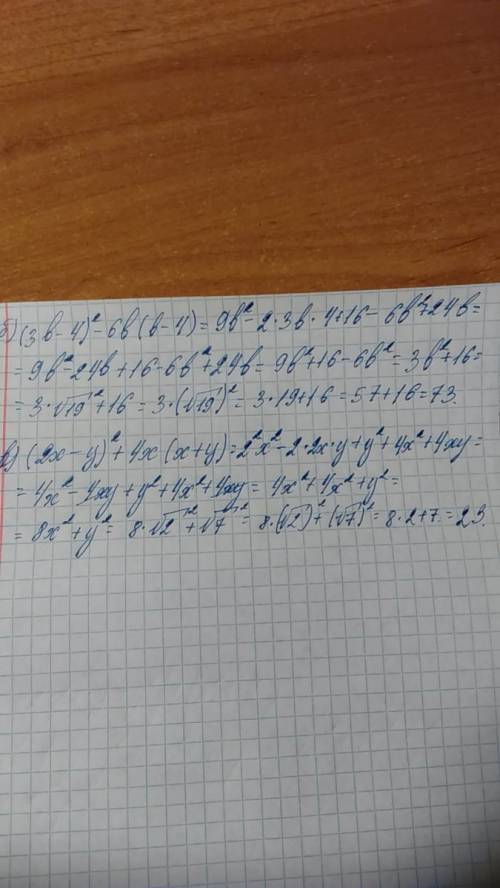 б) (3в-4)²-6в(в-4)=9в²-2·3в·4+16-6в²+24в=
=9в²-24в+16-6в²+24в=9в²+16-6в²=3в²+16=
=3·√19²+16=3·(√19)²=3·19+16=57+16=73.
в) (2x-y)²+4x(x+y)=2²x²-2·2x·y+y²+4x²+4xy=
=4x²-4xy+y²+4x²+4xy=4x²+4x²+y²=
=8x²+y²=8·√2²+√7²=8·(√2)²+(√7)²=8·2+7=23.